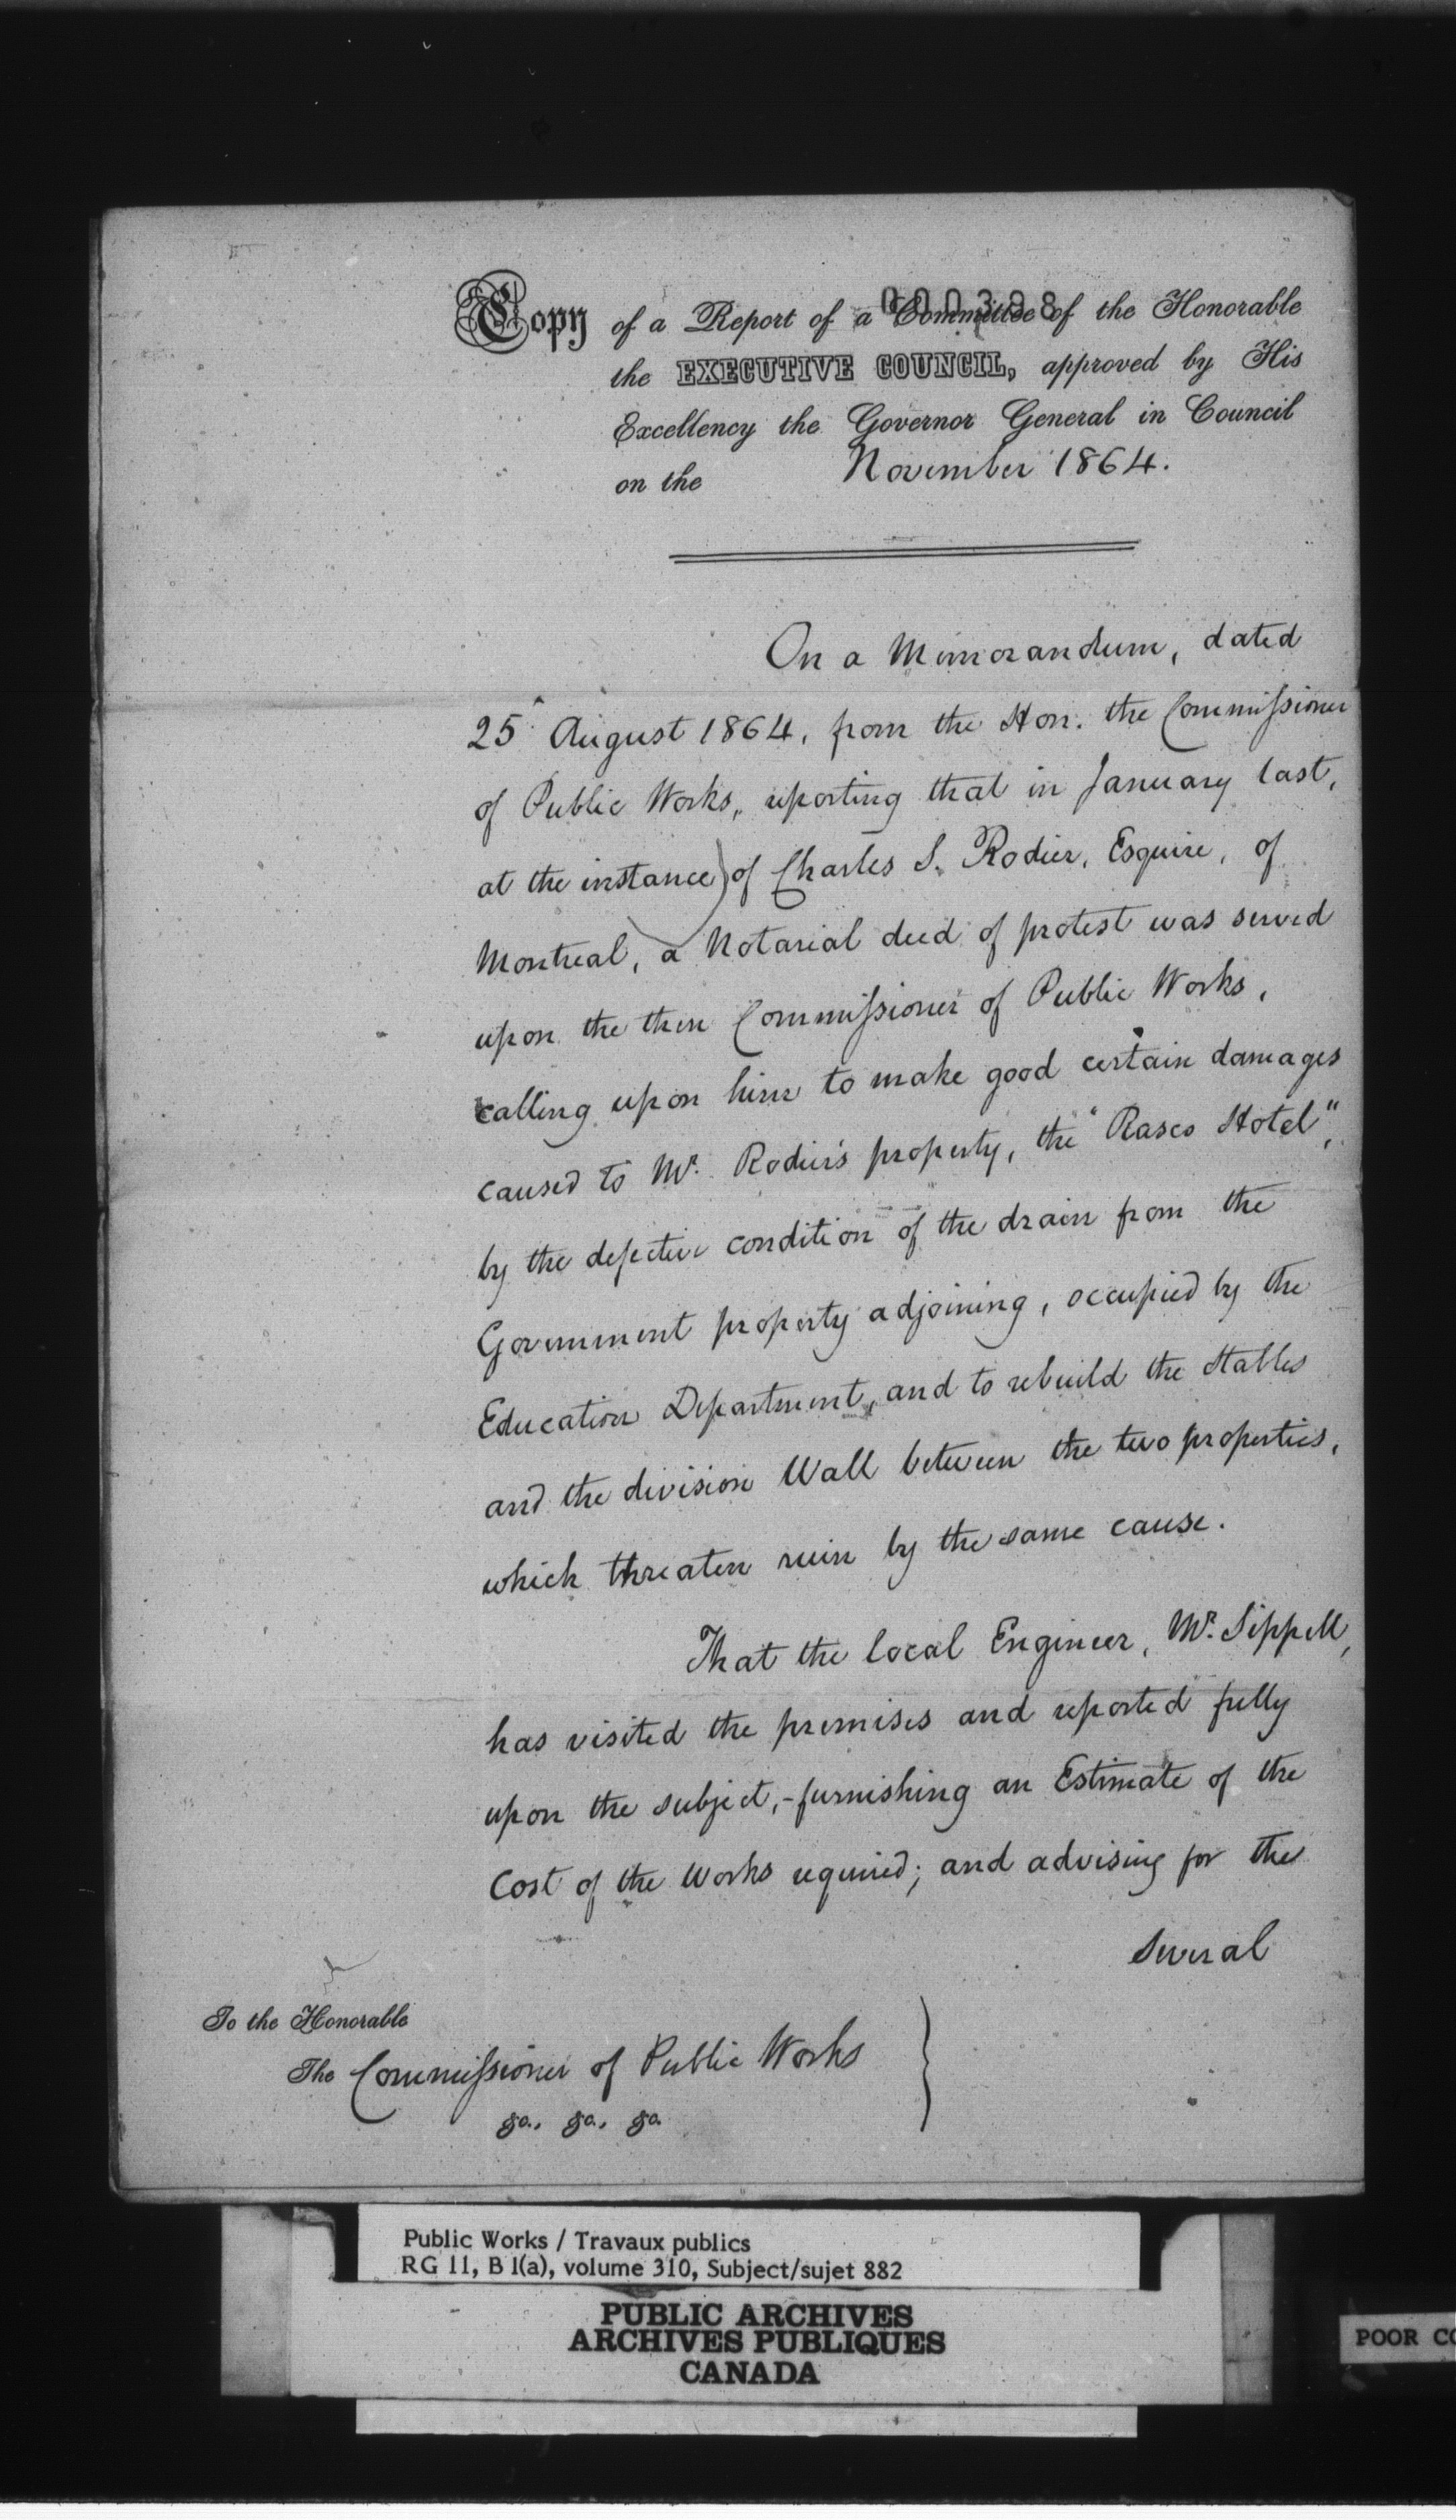 000398
Copy of a Report of a Committee of the Honorable
the EXECUTIVE COUNCIL, approved by His
Excellency the Governor General in Council
on the November 1864.
On a Memorandum, dated
25 August 1864, from the Hon. the Commissioner
of Public Works, reporting that in January last,
at the instance of Charles S. Rodier, Esquire, of
Montreal, a Notarial deed of protest was served
upon the then Commissioner of Public Works,
calling upon him to make good certain damages
caused to Mr. Rodier's property, the "Rasco Hotel",
by the defective condition of the drain from the
Government property adjoining, occupied by the
Education Department, and to rebuild the Stables
and the division Wall between the two properties,
which threaten ruin by the same cause.
That the local Engineer, Mr. Sippell,
has visited the premises and reported fully
upon the subject,- furnishing an Estimate of the
Cost of the works required; and advising for the
several
To the Honorable
The Commissioner of Public Works
&c., &c., &c.
Public Works / Travaux publics
RG 11, B 1(a), volume 310, Subject/sujet 882
PUBLIC ARCHIVES
ARCHIVES PUBLIQUES
CANADA
POOR CO